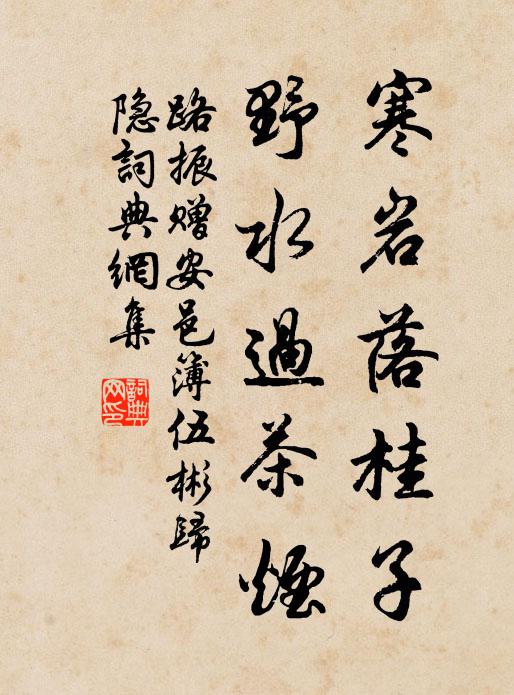 寒岩落桂子
野水過茶煙
路振贈安邑簿伍彬歸
隐詞典網集
詞典網印